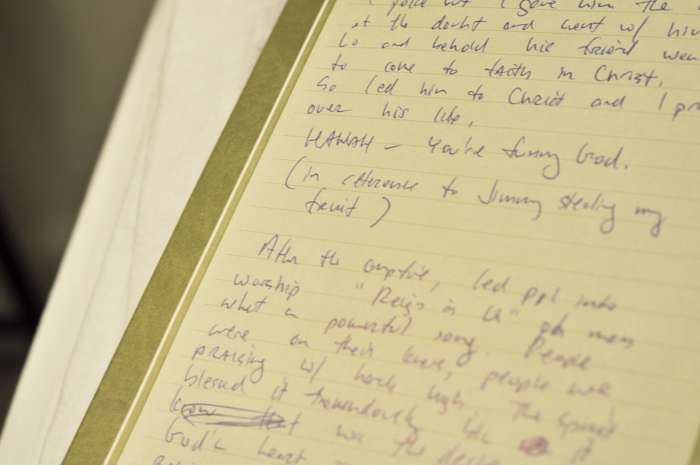 I gave him the
at the doubt and went w/ him
Lo and behold his friend wen
to come to faith in Christ.
So led him to Christ and I pr
over his life.
HAHAH - You're funny God.
(in reference to Jimmy stealing my
fruit)
After the, led ppl into
worship "Reign in Us" oh man
what a powerful song. People
were on their knees, people were
praising w/ hands high. The Spirit
blessed it tremendously b/c it
was the
God's heart